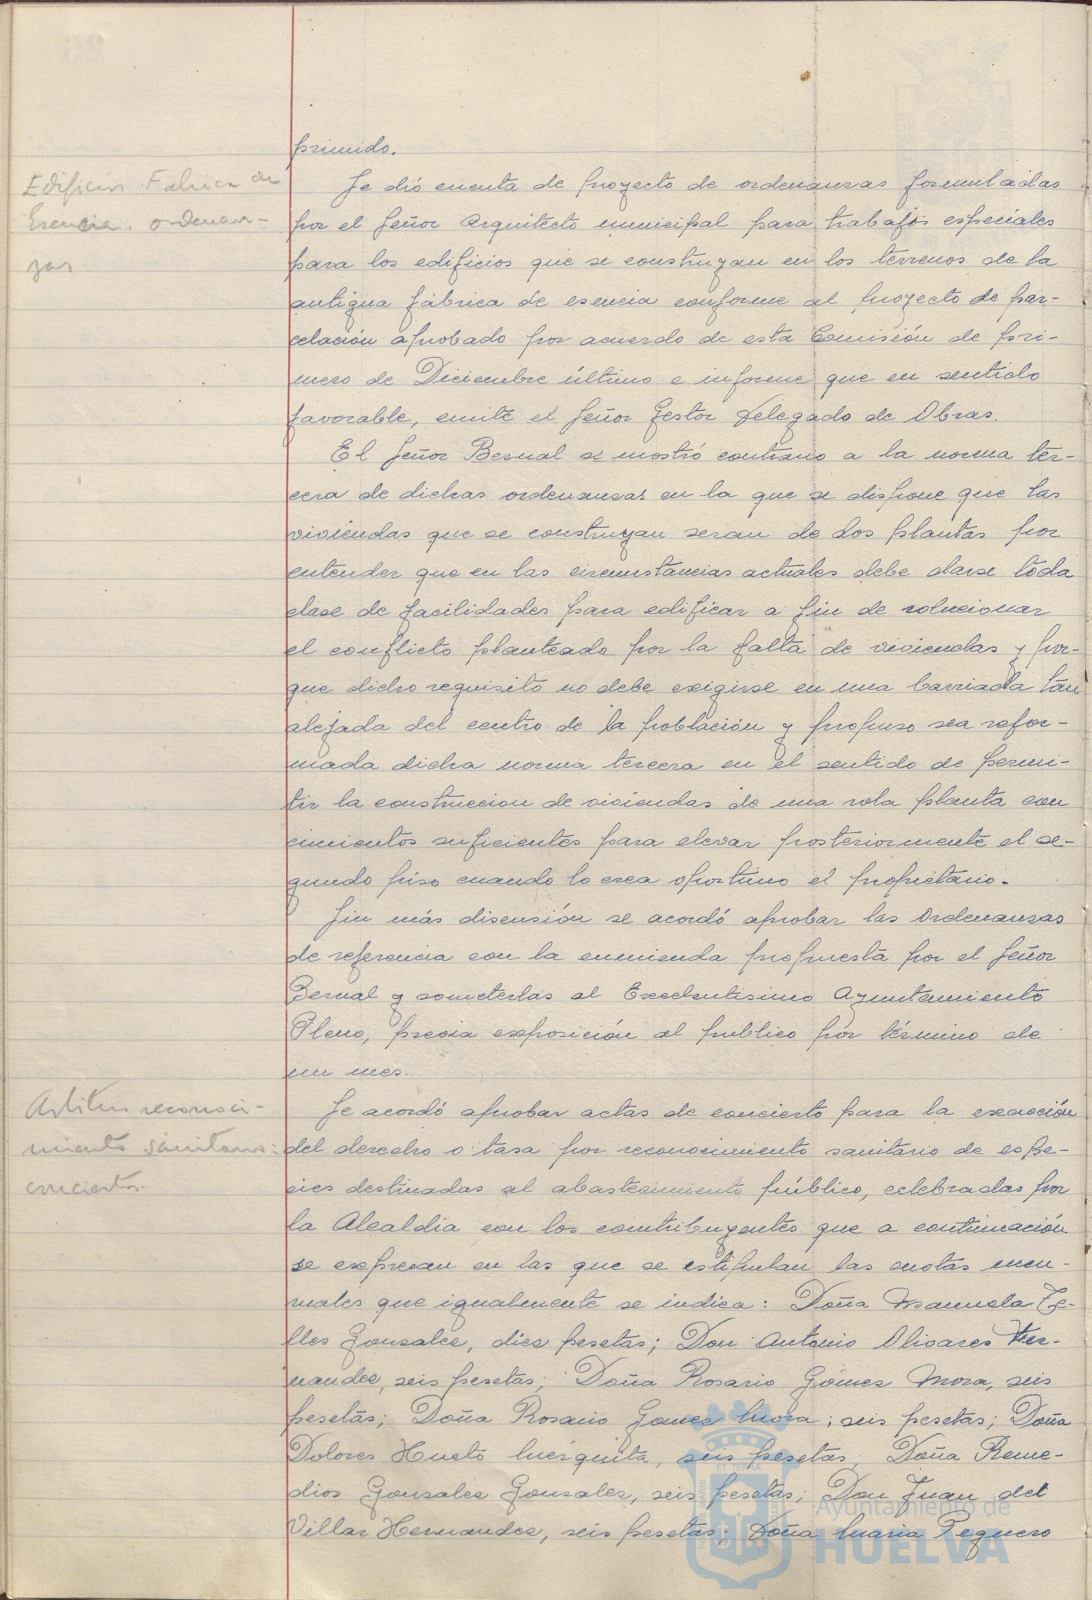 primido.
Edificios Fabrica de
Esencia. ordenan-
zas
Se dió cuenta de proyecto de ordenanzas formuladas
por el Señor Arquitecto municipal para trabajos especiales
para los edificios que se construyan en los terrenos de la
antigua fábrica de esencia conforme al proyecto de par-
celación aprobado por acuerdo de esta Comisión de pri-
mero de Diciembre último e informe que en sentido
favorable, emite el Señor Gestor Delegado de Obras.
El Señor Bernal se mostró contrario a la norma ter-
cera de dichas ordenanzas en la que se dispone que las
viviendas que se construyan seran de dos plantas por
entender que en las circunstancias actuales debe darse toda
clase de facilidades para edificar a fin de solucionar
el conflicto planteado por la falta de viviendas y por-
que dicho requisito no debe exigirse en una barriada tan
alejada del centro de la población y propuso sea refor-
mada dicha norma tercera en el sentido de permi-
tir la construccion de viviendas de una sola planta con
cimientos suficientes para elevar posteriormente el se-
gundo piso cuando lo crea oportuno el propietario.
Sin más discusión se acordó aprobar las Ordenanzas
de referencia con la enmienda propuesta por el Señor
Bernal y someterlas al Excelentisimo Ayuntamiento
Pleno, previa exposición al publico por término de
un mes.
Arbitrio reconoci-
miento sanitario:
conciertos.
Se acordó aprobar actas de concierto para la exacción
del derecho o tasa por reconocimiento sanitario de espe-
cies destinadas al abastecimiento público, celebradas por
la Alcaldia con los contribuyentes que a continuación
se expresan en las que se estipulan las cuotas men-
suales que igualmente se indica: Doña Manuela Te-
lles Gonsales, dies pesetas; Don Antonio Olivares Her-
nandes, seis pesetas; Doña Rosario Gómes Mora, seis
pesetas; Doña Rosario Gomes Mora; seis pesetas; Doña
Dolores Hueto Muesquita, seis pesetas, Doña Reme-
dios Gonsales Gonsales, seis pesetas; Don Juan del
Villar Hernandes, seis pesetas; Doña Maria Peguero
Ayuntamiento de
HUELVA